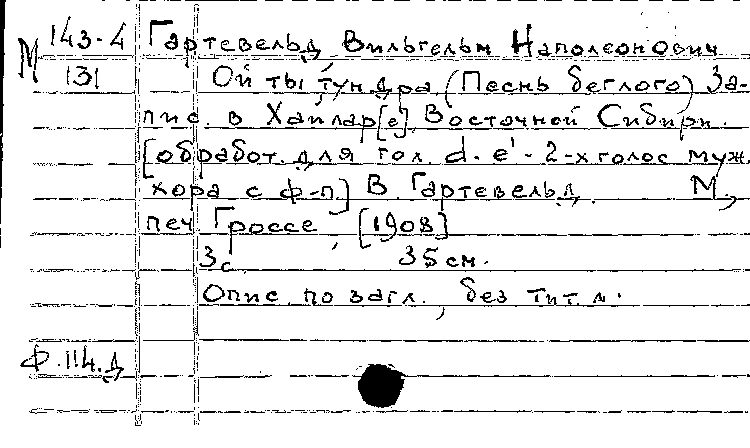 М 143-4 Гартевельд, Вильгельм Наполеонович
131 Ой ты, тундра (Песнь беглого) За-
пис. в Хайлар[е], Восточной Сибири.
[обработ. для гол. d-e¹-2-х голос муж.
хора с ф-п.] В. Гартевельд. М.,
печ. Гроссе, [1908]
3с. 35 см.
Опис. по загл., без тит. л.
Ф. 114. д